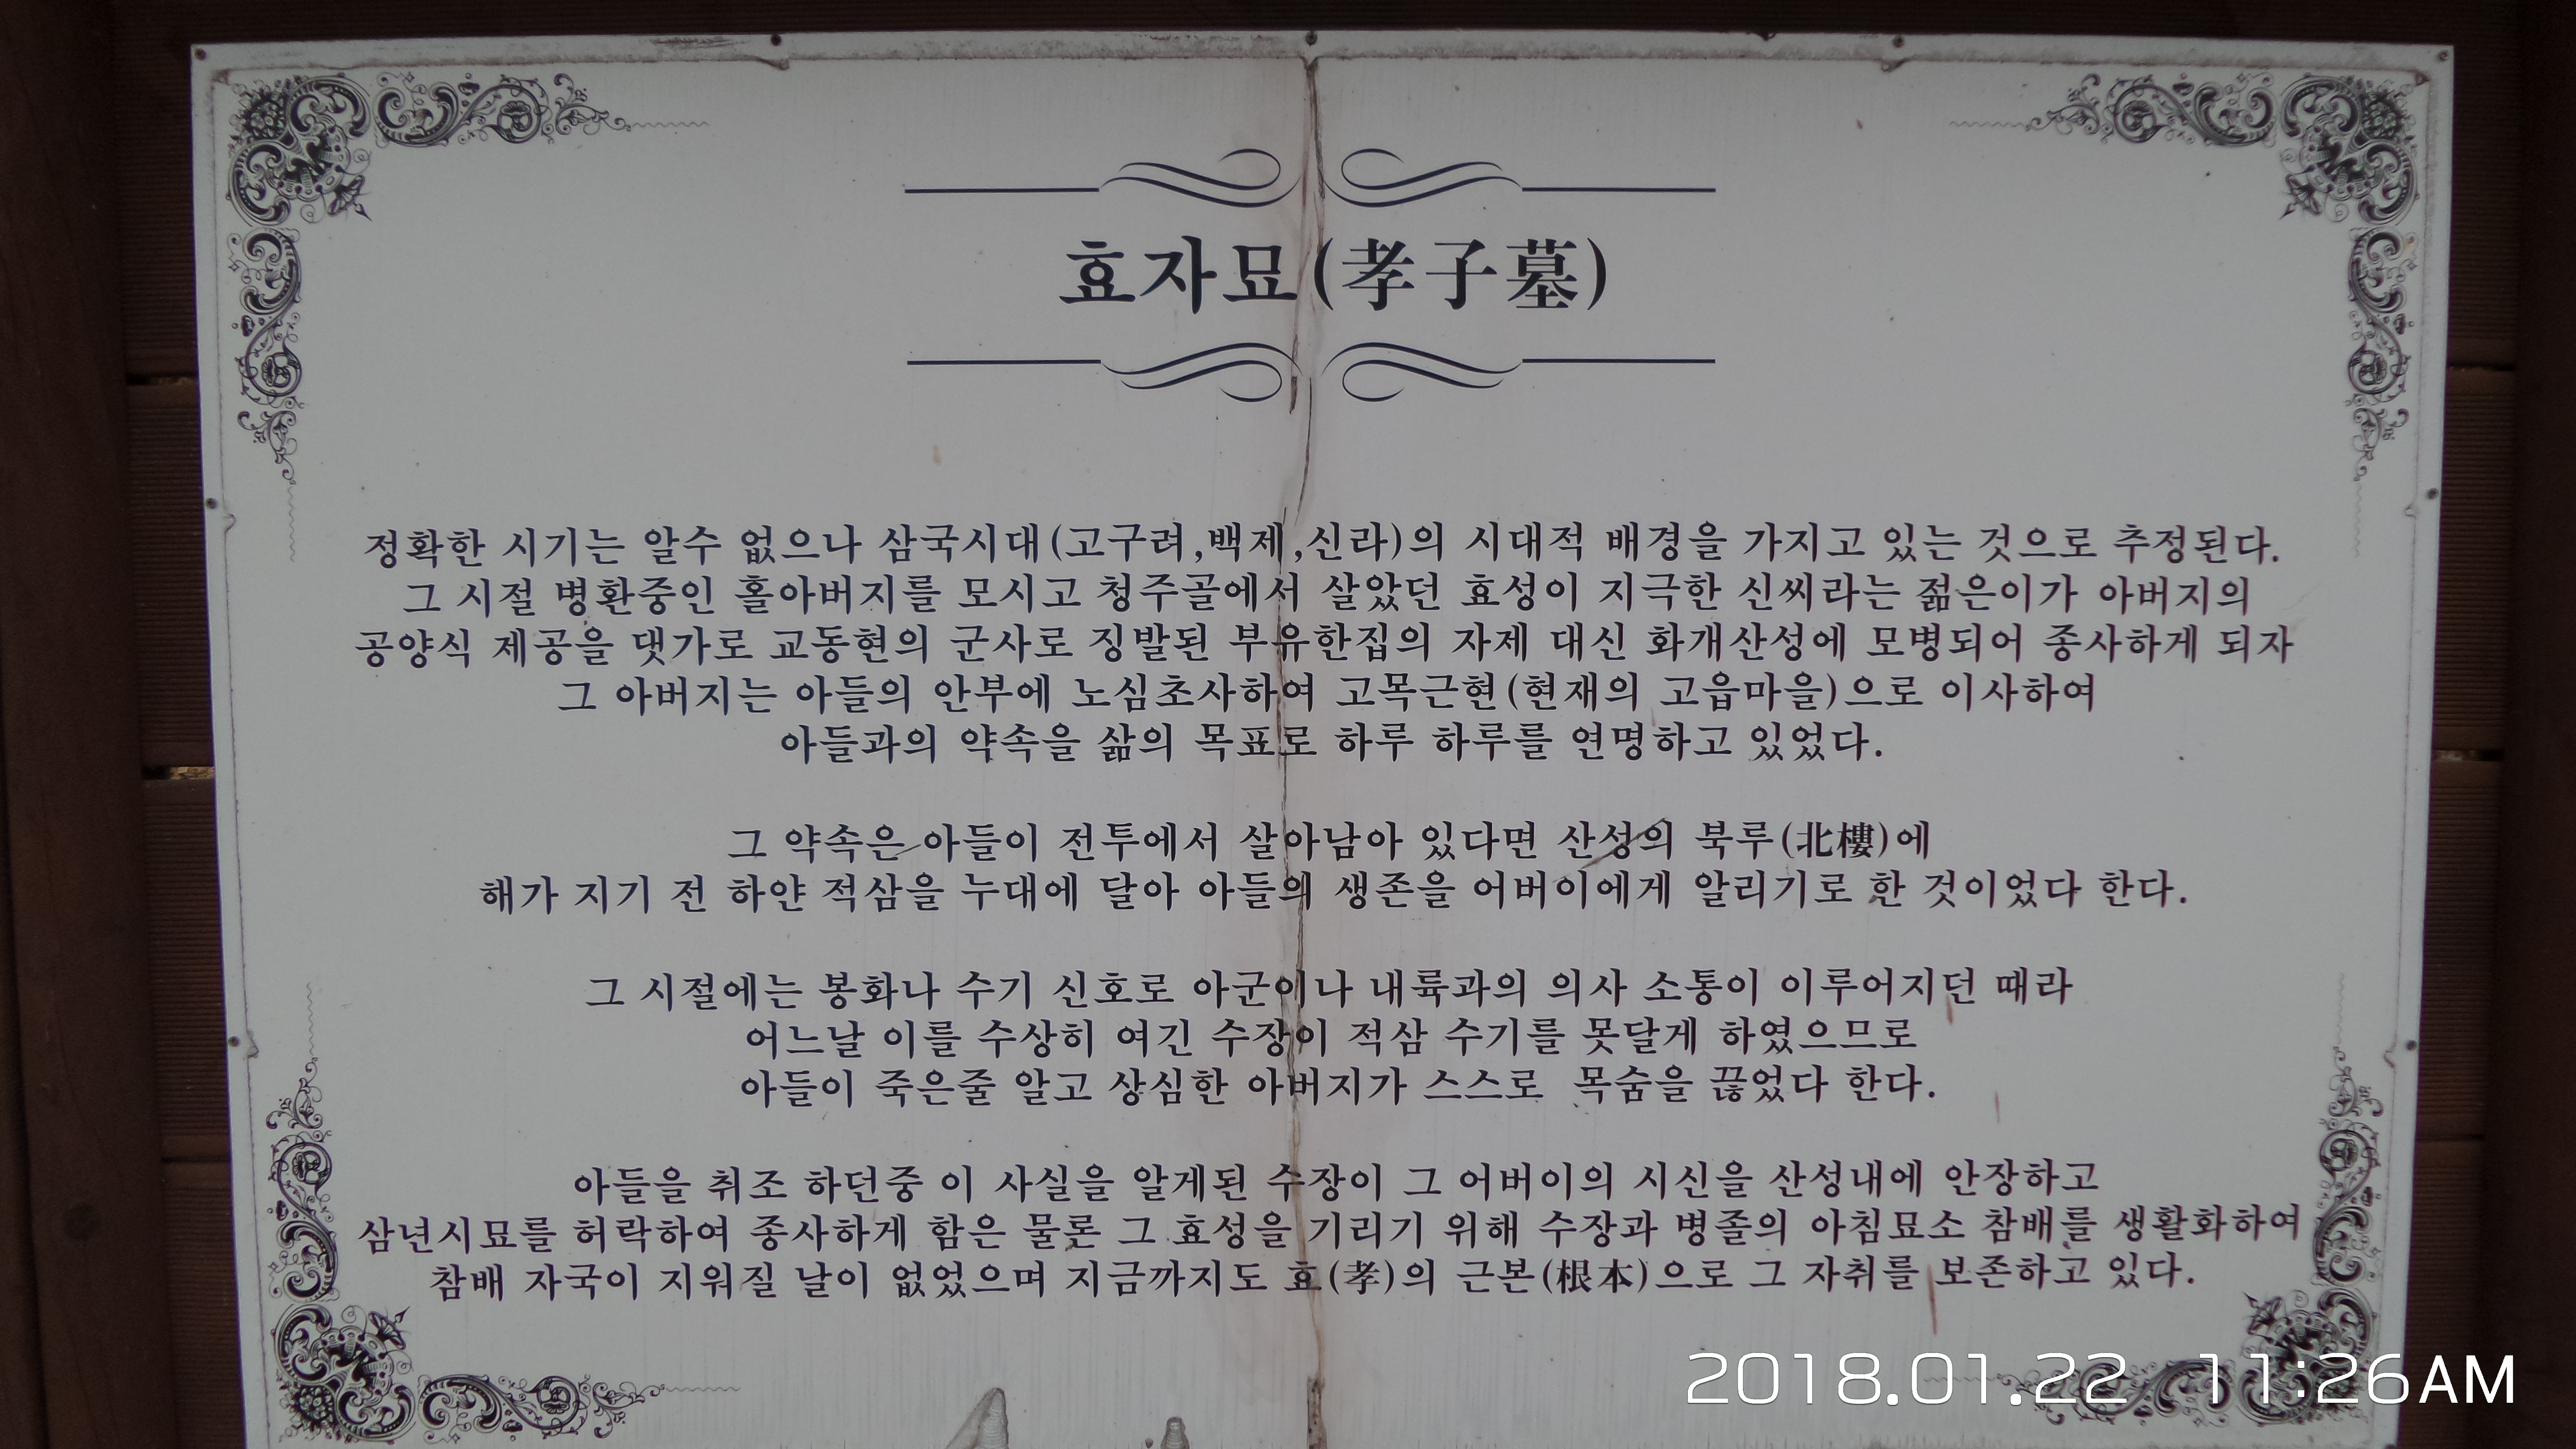 효자묘(孝子墓)
정확한 시기는 알수 없으나 삼국시대(고구려,백제,신라)의 시대적 배경을 가지고 있는 것으로 추정된다.
그 시절 병환중인 홀아버지를 모시고 청주골에서 살았던 효성이 지극한 신씨라는 젊은이가 아버지의
공양식 제공을 댓가로 교동현의 군사로 징발된 부유한집의 자제 대신 화개산성에 모병되어 종사하게 되자
그 아버지는 아들의 안부에 노심초사하여 고목근현(현재의 고읍마을)으로 이사하여
아들과의 약속을 삶의 목표로 하루 하루를 연명하고 있었다.
그 약속은 아들이 전투에서 살아남아 있다면 산성의 북루(北樓)에
해가 지기 전 하얀 적삼을 누대에 달아 아들의 생존을 어버이에게 알리기로 한 것이었다 한다.
그 시절에는 봉화나 수기 신호로 아군이나 내륙과의 의사 소통이 이루어지던 때라
어느날 이를 수상히 여긴 수장이 적삼 수기를 못달게 하였으므로
아들이 죽은줄 알고 상심한 아버지가 스스로 목숨을 끊었다 한다.
아들을 취조 하던중 이 사실을 알게된 수장이 그 어버이의 시신을 산성내에 안장하고
삼년시묘를 허락하여 종사하게 함은 물론 그 효성을 기리기 위해 수장과 병졸의 아침묘소 참배를 생활화하여
참배 자국이 지워질 날이 없었으며 지금까지도 효(孝)의 근본(根本)으로 그 자취를 보존하고 있다.
2018.01.22 11:26AM